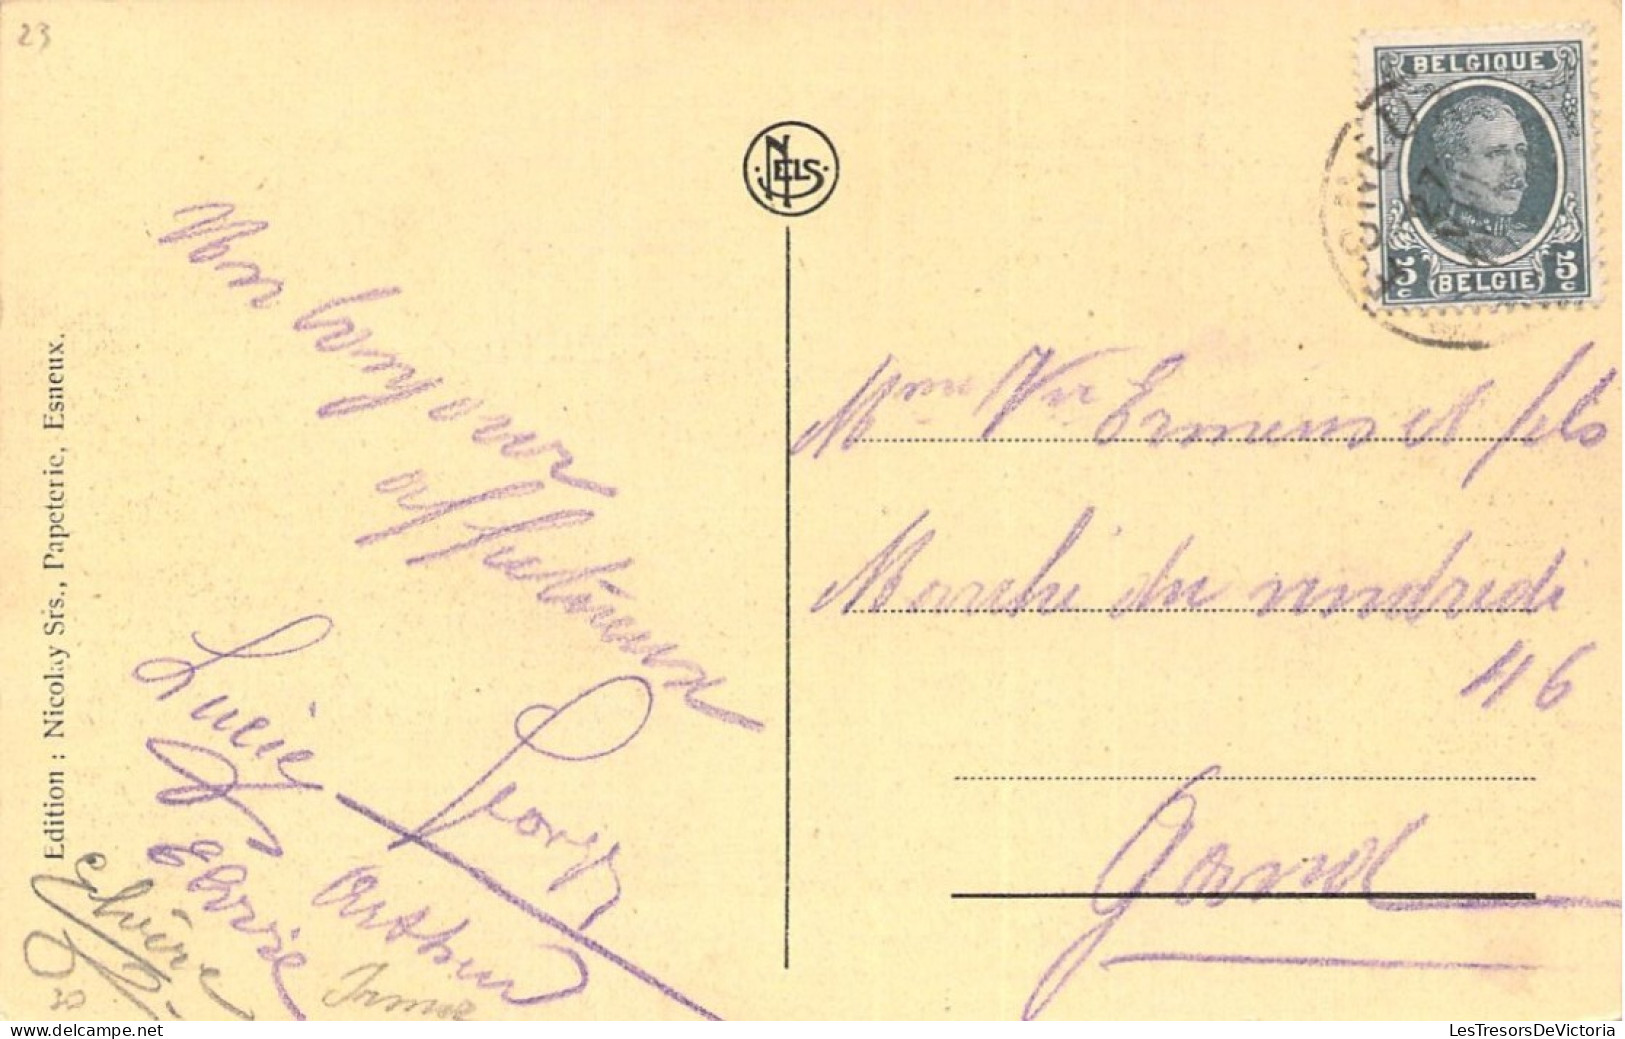 23
BELGIQUE
5c 5c
BELGIE
27
NELS
Edition : Nicolay Srs., Papeterie, Esneux.
Mon bonjour
affectueux
Lucie
Georges
Elvire
Arthur
Irma
Mme Vve Ermens et fils
Marché du vendredi
46
Gand
LesTresorsDeVictoria
delcampe.net